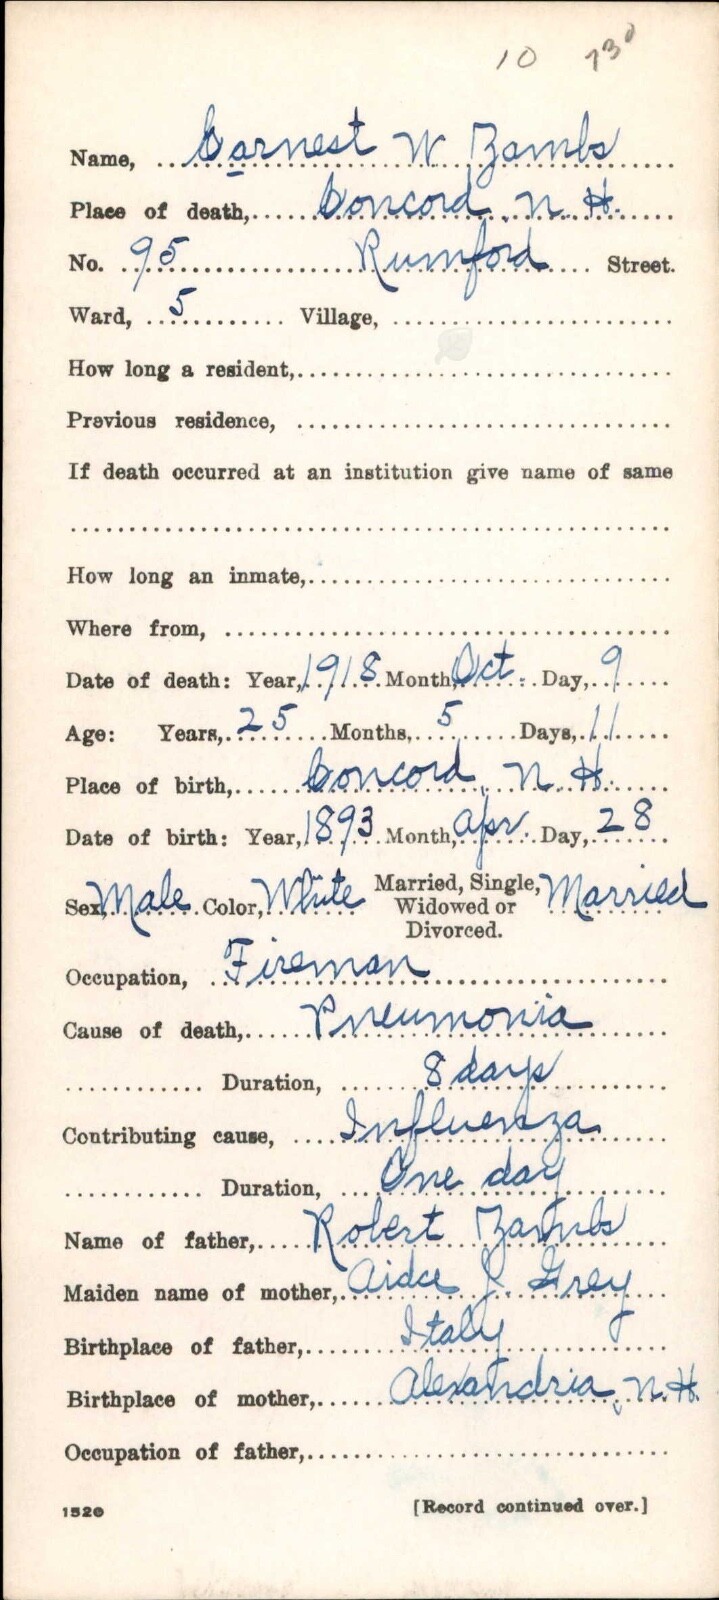 10 730
Name, Earnest W Zambs
Place of death, Concord, N. H.
No. 95 Rumford Street.
Ward, 5 Village,
How long a resident,
Previous residence,
If death occurred at an institution give name of same
How long an inmate,
Where from,
Date of death: Year, 1918 Month, Oct. Day, 9
Age: Years, 25 Months, 5 Days, 11
Place of birth, Concord, N. H.
Date of birth: Year, 1893 Month, Apr. Day, 28
Sex, Male Color, White Married, Single, Widowed or Divorced. Married
Occupation, Fireman
Cause of death, Pneumonia
Duration, 8 days
Contributing cause, Influenza
Duration, One day
Name of father, Robert Zambs
Maiden name of mother, J. Grey
Birthplace of father, Italy
Birthplace of mother, Alexandria, N. H.
Occupation of father,
1520 [Record continued over.]